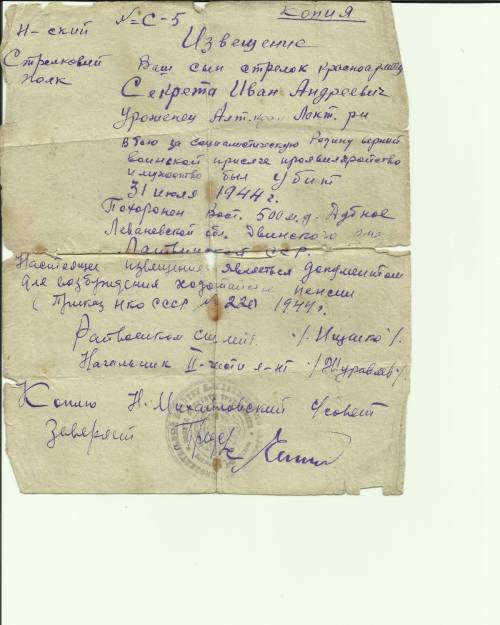 Копия
№ С-5
Н-ский
Извещение
Стрелковый Ваш сын стрелок красноармеец
полк Секрета Иван Андреевич
Уроженец Алт. края Локт. р-н
в бою за социалистическую Родину верный
воинской присяге проявил геройство
и мужество был убит
31 июля 1944 г.
Похоронен Вост. 500 м. д. Дубное
обл. Двинского
Латвийской ССР
Настоящее извещение является документом
для возбуждения ходатайств пенсии
(Приказ НКО СССР № 220 1944 г.
Райвоенком ст. лейт. /Ищенко/.
Начальник II-части л-нт /Журавлев/.
Копию Н. Михайловский с/совет
Заверяет